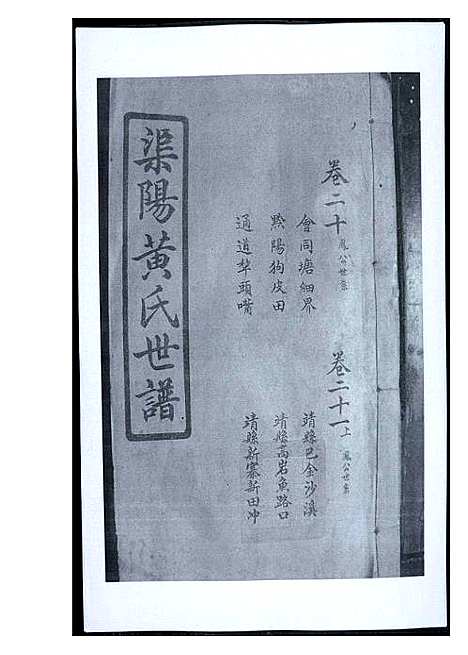 卷二十 鳳公世系
會同塘細界
黔陽狗皮田
通道犂頭嘴
卷二十一上 鳳公世系
靖縣巳金沙溪
靖縣高岩魚路口
靖縣新寨新田冲
渠陽黃氏世譜